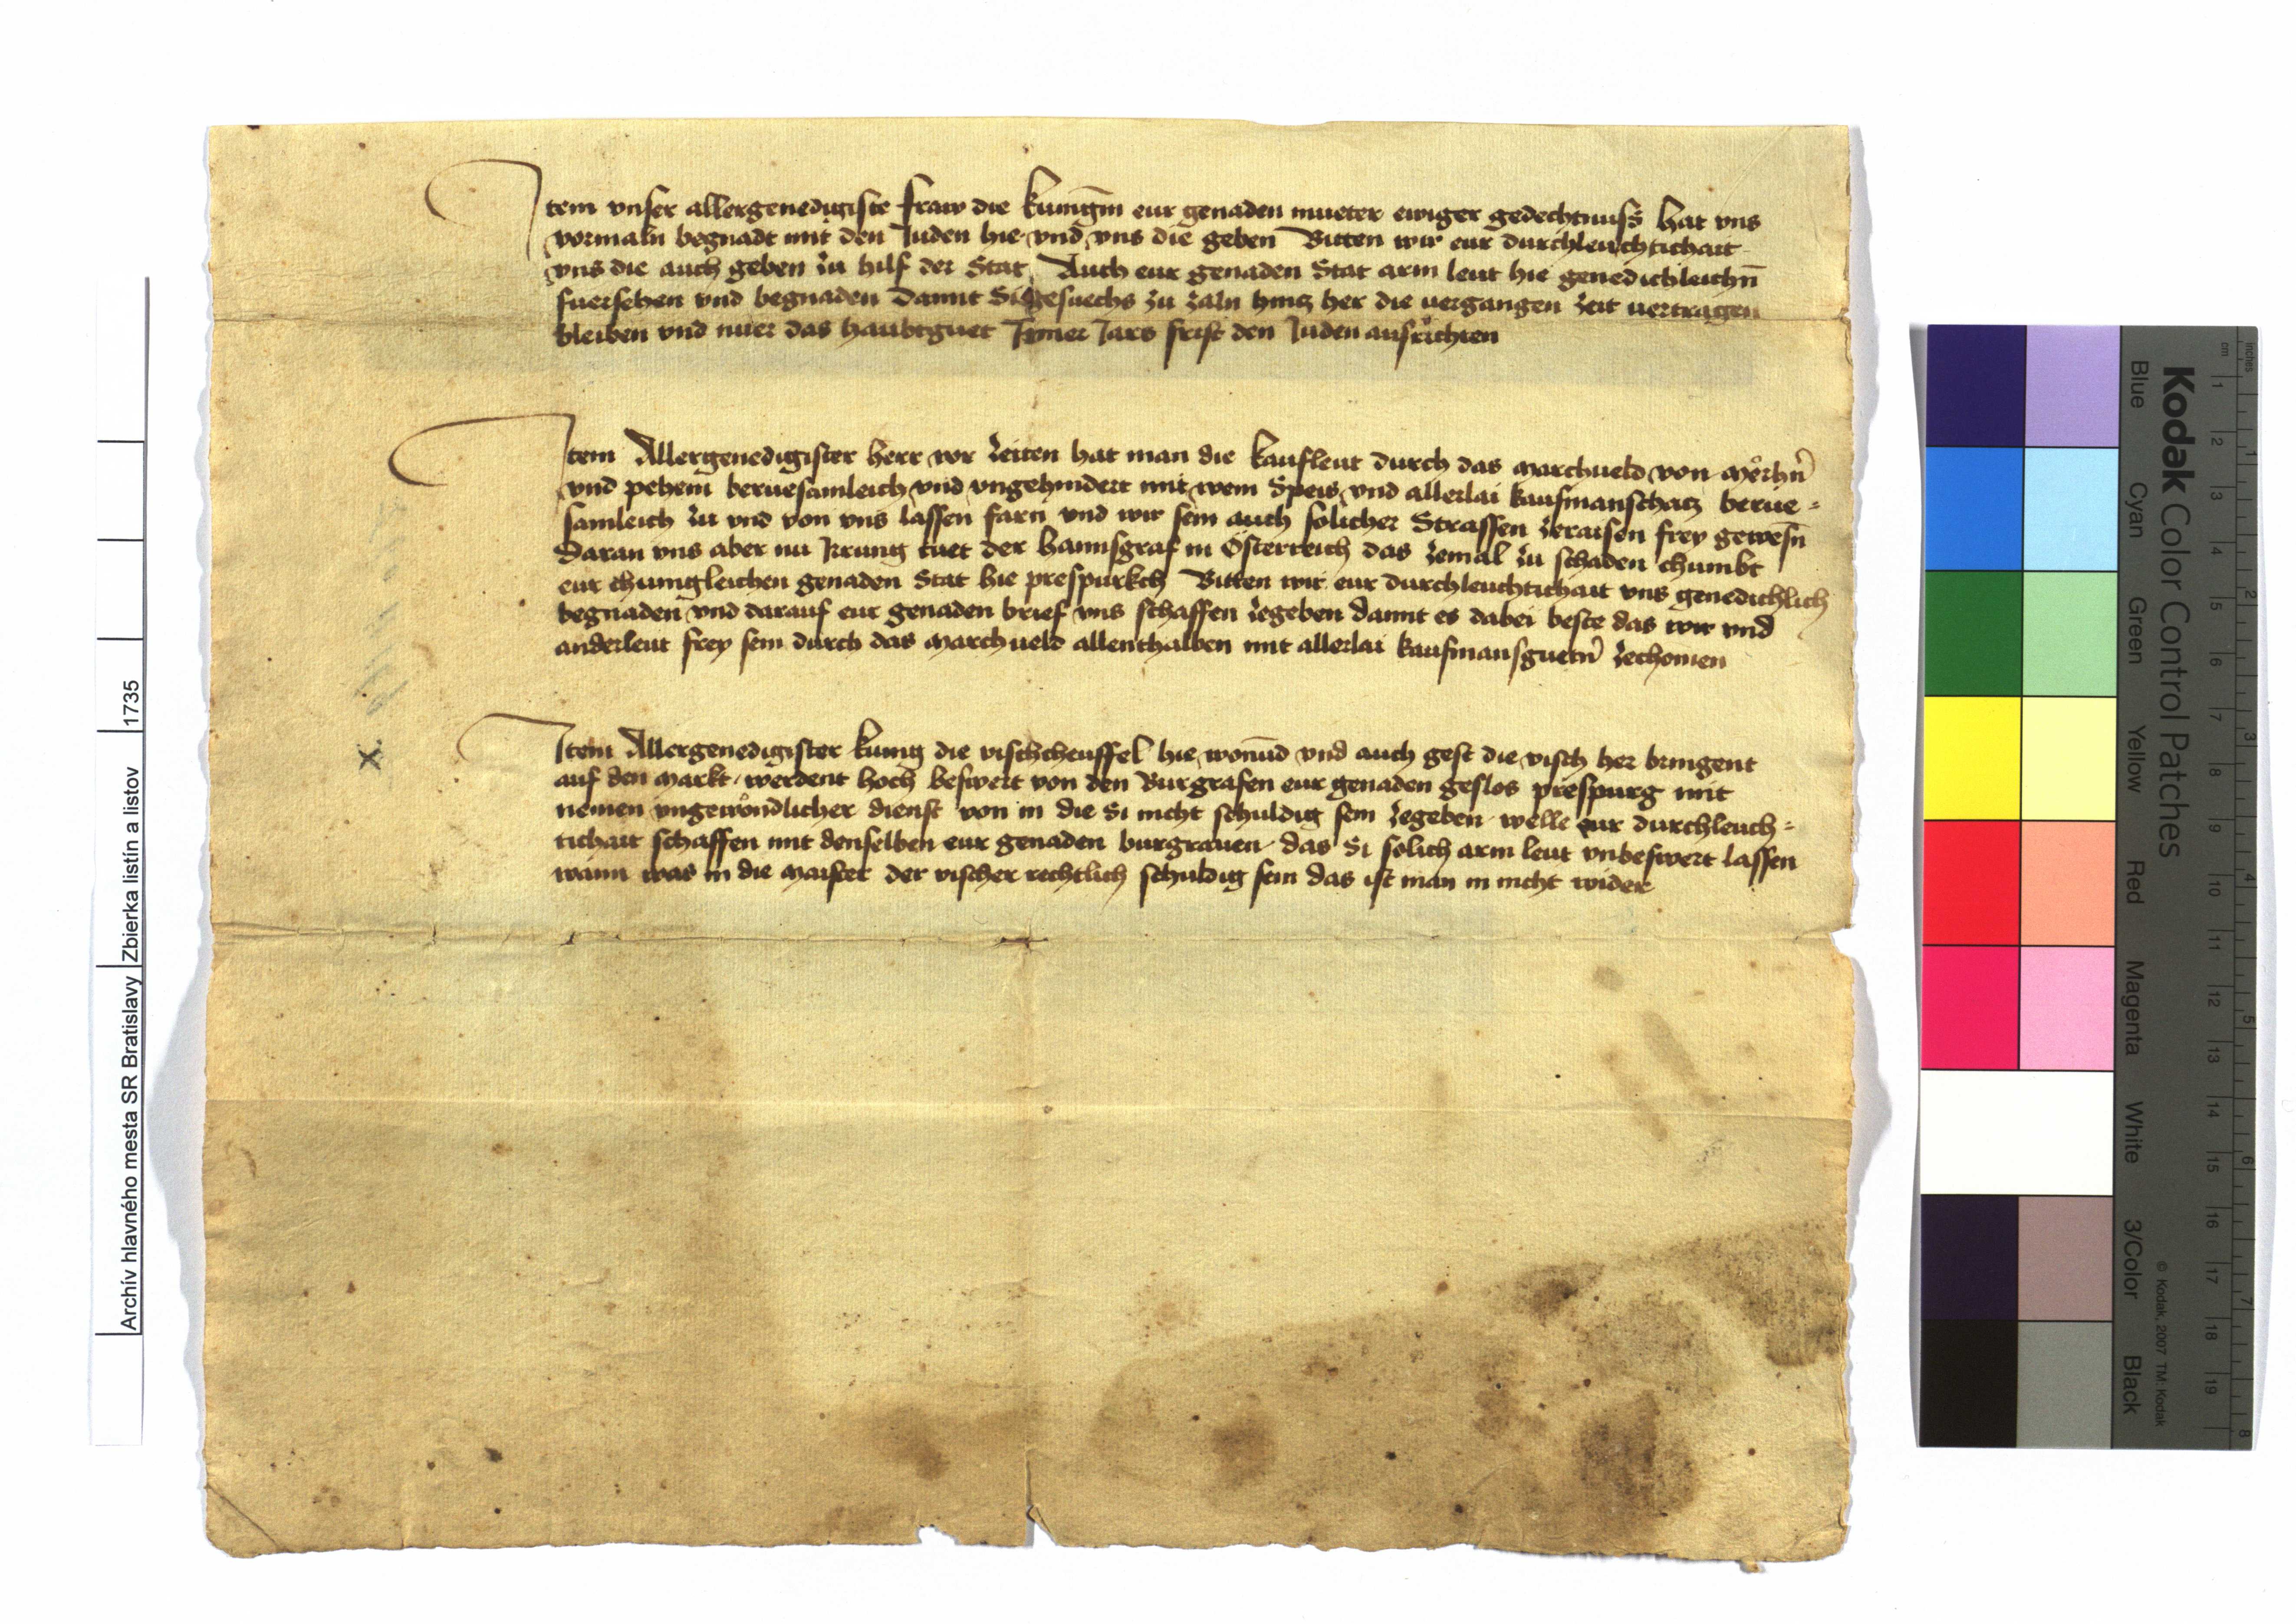 Item vnser allergenedigiste fraw die kunigīn eur genaden mueter ewiger gedechtnuss hat vns
vormaln begnadt mit den Juden hie vnd vns die geben Bitten wir eur durchleuchtichait
vns die auch geben zu hilf der Stat Auch eur genaden Stat arm leut hie genedichleichn̄
fuersehen vnd begnaden damit Si gesuechs zu zaln hincz her die uergangen zeit uertragen
bleiben vnd nuer das haubtguet Inner Jars frist den Juden ausrichten
Item Allergenedigister herr vor zeiten hat man die kaufleut durch das marchueld von Merhn̄
vnd pehem beruesamleich vnd vngehindert mit wein Speis vnd allerlai kaufmanschacz berue=
samleich zu vnd von vns lassen farn vnd wir sein auch solicher Strassen zeraisen frey gewesn̄
Daran vns aber nu Irrung tuet der hannsgraf in Österreich das zemal zu schaden chumbt
eur chunigleichen genaden Stat hie prespurkch Bitten wir eur durchleuchtichait vns genedichlich
begnaden vnd darauf eur genaden brief vns schaffen zegeben damit es dabei beste das wir vnd
anderleut frey sein durch das marchueld allenthalben mit allerlai kaufmansguetn̄ zechomen
Item Allergenedigister kunig die vischcheuffel hie wonūd vnd auch gest die visch her bringent
auf den markt werdent hoch beswert von den Burgrafen eur genaden geslos prespurg mit
nemen vngewöndlicher dienst von in die Si nicht schuldig sein zegeben welle eur durchleuch=
tichait schaffen mit denselben eur genaden burgrauen das Si solich arm leut vnbeswert lassen
wann was in die maister der vischer rechtlich schuldig sein das ist man in nicht wider
X.
Archív hlavného mesta SR Bratislavy
Zbierka listín a listov
1735
Kodak Color Control Patches
© Kodak, 2007 TM: Kodak
Blue
Cyan
Green
Yellow
Red
Magenta
White
3/Color
Black
inches
1
2
3
4
5
6
7
8
cm
1
2
3
4
5
6
7
8
9
10
11
12
13
14
15
16
17
18
19